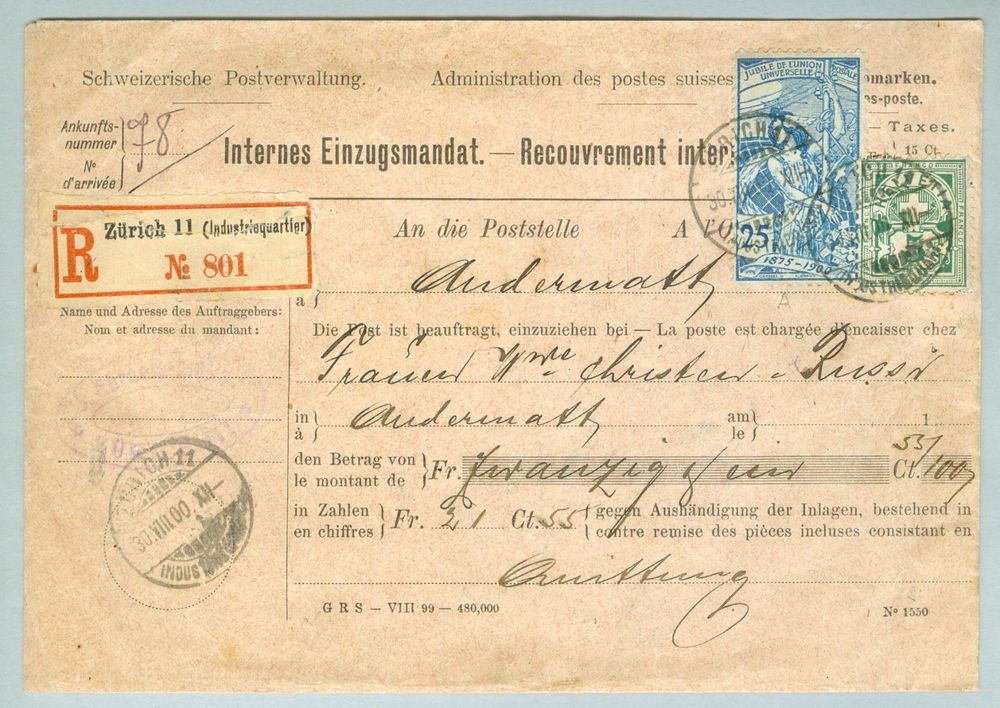 Schweizerische Postverwaltung. Administration des postes suisses
omarken.
es-poste.
— Taxes.
15 Ct.
Ankunfts-
nummer
No
d'arrivée
78
Internes Einzugsmandat. — Recouvrement inter
R
Zürich 11 (Industriequartier)
No 801
JUBILE DE L'UNION
UNIVERSELLE POSTALE
25
1875-1900
FRANCO
ZÜRICH 11
30.VII
An die Poststelle A l'o
à Andermatt
Name und Adresse des Auftraggebers:
Nom et adresse du mandant:
Die Post ist beauftragt, einzuziehen bei — La poste est chargée d'encaisser chez
Frauen Wwe Christen-Russi
in
à
Andermatt
am
le
1
den Betrag von
le montant de
Fr. zwanzig & ein 55/
Ct. 100
in Zahlen
en chiffres
Fr. 21 Ct. 55
gegen Aushändigung der Inlagen, bestehend in
contre remise des pièces incluses consistant en
Quittung
ZÜRICH 11
30.VII.00.XII–
INDUS
G R S — VIII 99 — 480,000
No 1550